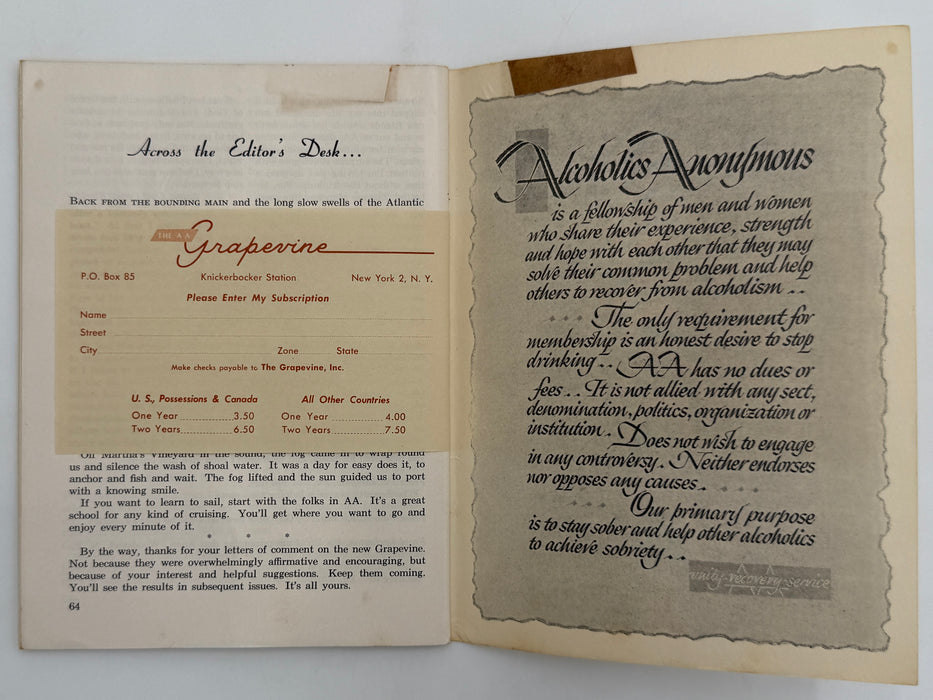 Across the Editor's Desk...
BACK FROM THE BOUNDING MAIN and the long slow swells of the Atlantic
THE AA
Grapevine
P.O. Box 85 Knickerbocker Station New York 2, N. Y.
Please Enter My Subscription
Name
Street
City Zone State
Make checks payable to The Grapevine, Inc.
U. S., Possessions & Canada All Other Countries
One Year 3.50 One Year 4.00
Two Years 6.50 Two Years 7.50
Off Martha's Vineyard in the sound, the fog came in to wrap round
us and silence the wash of shoal water. It was a day for easy does it, to
anchor and fish and wait. The fog lifted and the sun guided us to port
with a knowing smile.
If you want to learn to sail, start with the folks in AA. It's a great
school for any kind of cruising. You'll get where you want to go and
enjoy every minute of it.
* * *
By the way, thanks for your letters of comment on the new Grapevine.
Not because they were overwhelmingly affirmative and encouraging, but
because of your interest and helpful suggestions. Keep them coming.
You'll see the results in subsequent issues. It's all yours.
64
Alcoholics Anonymous
is a fellowship of men and women
who share their experience, strength
and hope with each other that they may
solve their common problem and help
others to recover from alcoholism . .
The only requirement for
membership is an honest desire to stop
drinking . . AA has no dues or
fees . . It is not allied with any sect,
denomination, politics, organization or
institution . Does not wish to engage
in any controversy . Neither endorses
nor opposes any causes .
Our primary purpose
is to stay sober and help other alcoholics
to achieve sobriety . .
unity-recovery-service